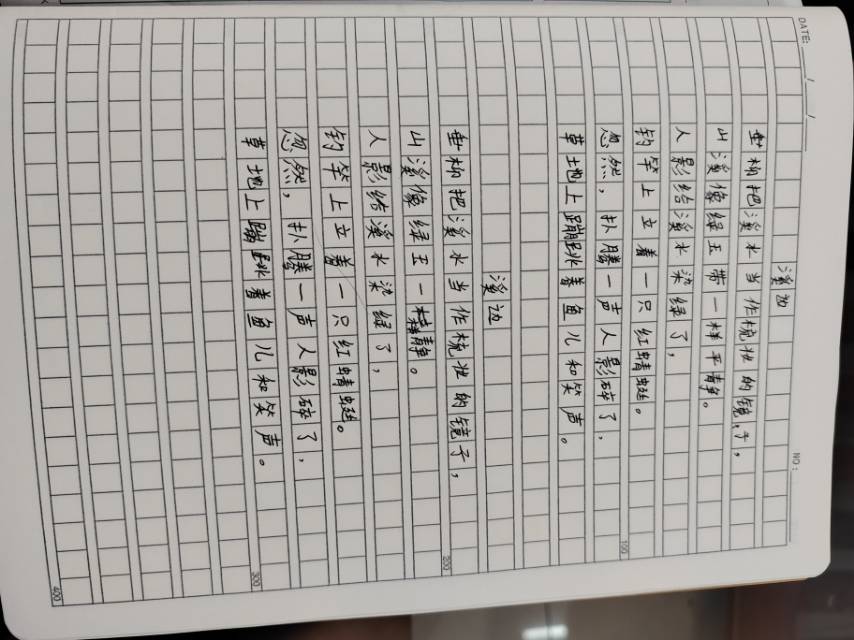 DATE: / /
NO:
溪边
垂柳把溪水当作梳妆的镜子，
山溪像绿玉带一样平静。
人影给溪水染绿了，
钓竿上立着一只红蜻蜓。
忽然，扑腾一声人影碎了，
草地上蹦跳着鱼儿和笑声。
100
溪边
垂柳把溪水当作梳妆的镜子，
山溪像绿玉一样静。
人影给溪水染绿了，
200
钓竿上立着一只红蜻蜓。
忽然，扑腾一声人影碎了，
草地上蹦跳着鱼儿和笑声。
300
400